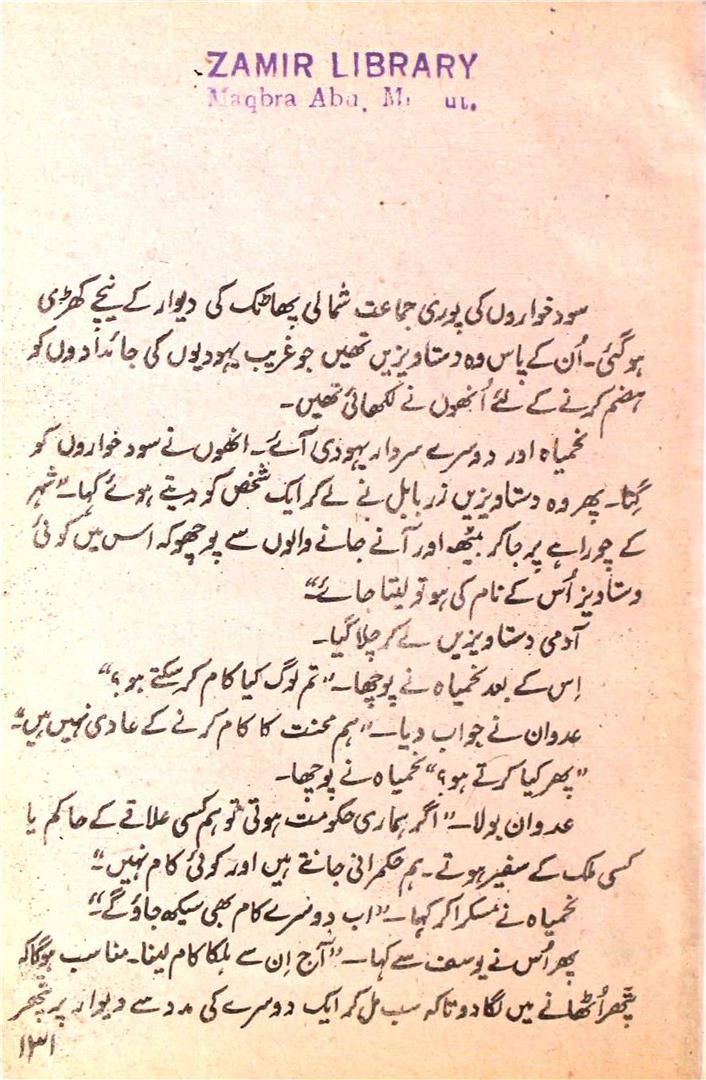 ZAMIR LIBRARY
Maqbra Abu. M ut.
سود خواروں کی پوری جماعت شمالی پھاٹک کی دیوار کے نیچے کھڑی
ہو گئی۔ اُن کے پاس وہ دستاویزیں تھیں جو غریب یہودیوں کی جائدادوں کو
ہضم کرنے کے لئے اُنھوں نے لکھائی تھیں۔
نحمیاہ اور دوسرے سردار یہودی آئے۔ انھوں نے سود خواروں کو
گِنا۔ پھر وہ دستاویزیں زربابل نے لے کر ایک شخص کو دیتے ہوئے کہا۔ "شہر
کے چوراہے پر جا کر بیٹھ اور آنے جانے والوں سے پوچھو کہ اس میں کوئی
دستاویز اُس کے نام کی ہو تو لیتا جائے"
آدمی دستاویزیں لے کر چلا گیا۔
اِس کے بعد نحمیاہ نے پوچھا۔ "تم لوگ کیا کام کر سکتے ہو؟"
عدوان نے جواب دیا۔ "ہم محنت کا کام کرنے کے عادی نہیں ہیں"
"پھر کیا کرتے ہو؟" نحمیاہ نے پوچھا۔
عدوان بولا۔ "اگر ہماری حکومت ہوتی تو ہم کسی علاقے کے حاکم یا
کسی ملک کے سفیر ہوتے۔ ہم حکمرانی جانتے ہیں اور کوئی کام نہیں"
نحمیاہ نے مسکرا کر کہا۔ "اب دوسرے کام بھی سیکھ جاؤ گے"
پھر اُس نے یوسف سے کہا۔ "آج اِن سے ہلکا کام لینا۔ مناسب ہو گا کہ
پتّھر اُٹھانے میں لگا دو تاکہ سب مل کر ایک دوسرے کی مدد سے دیوار پر پتّھر
۱۳۱